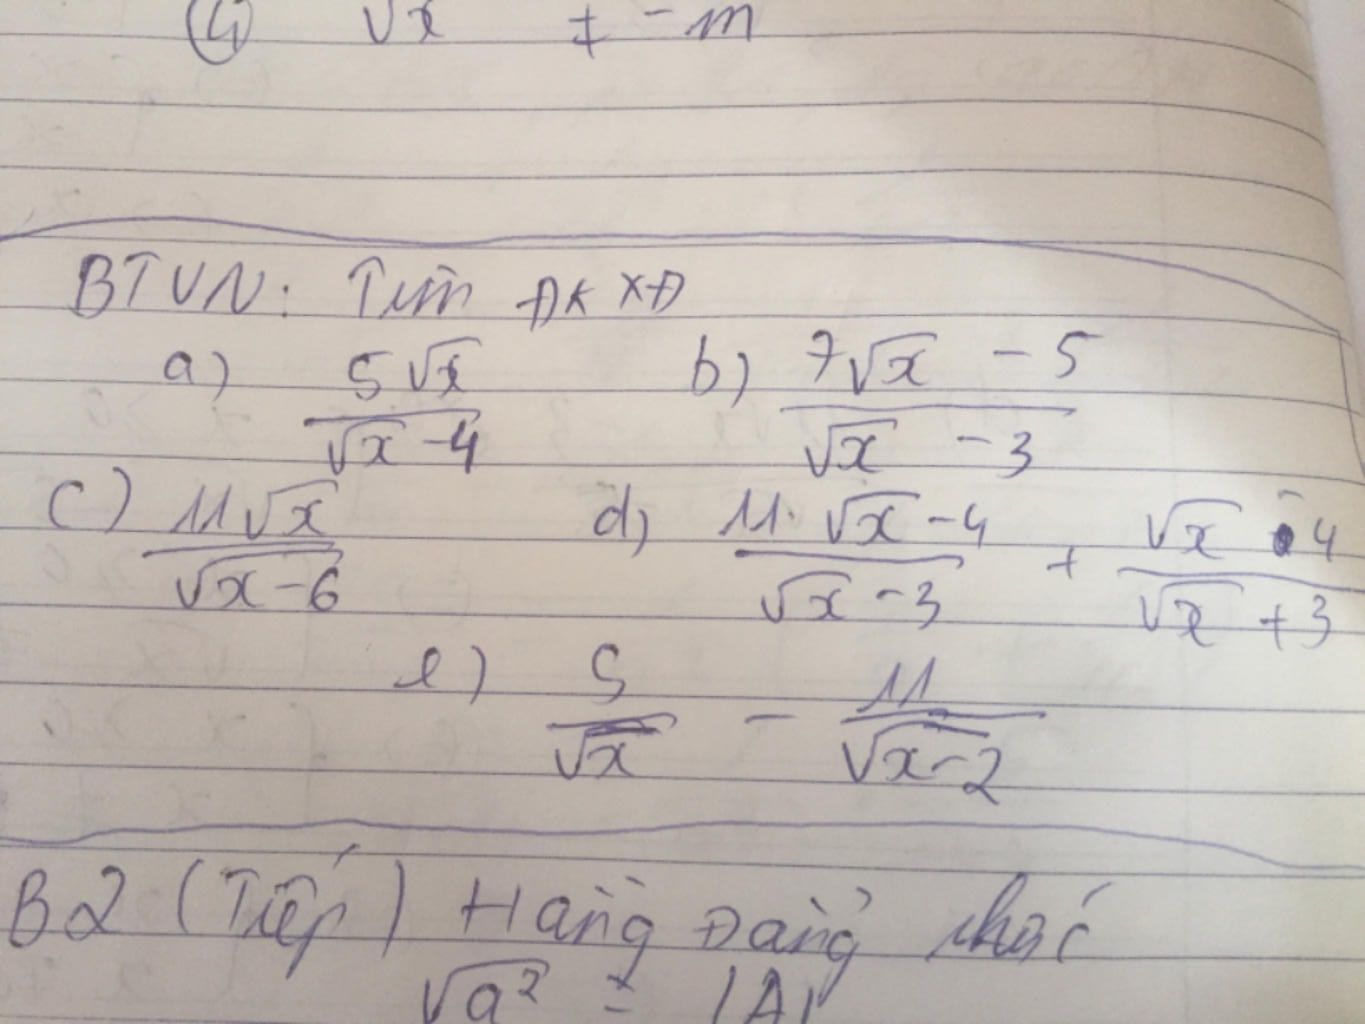 ④ √x ≠ -m
BTVN: Tìm ĐKXĐ
a) 5√x / (√x - 4) b) (7√x - 5) / (√x - 3)
c) 11√x / √(x-6) d) (11.√x - 4) / (√x - 3) + (√x - 4) / (√x + 3)
e) 5/√x - 11/√(x-2)
B2 (Tiếp) Hằng Đẳng thức
√a² = |A|